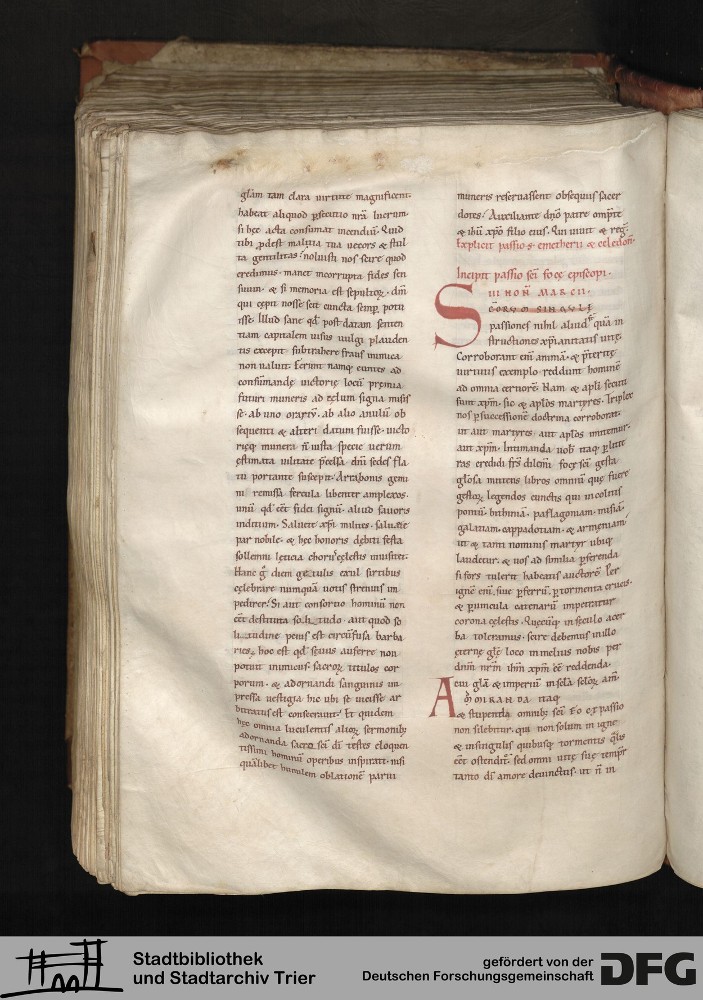 glām tam clara uirtute magnificent.
habeat aliquod ꝑsecutio nrā lucrum.
si hęc acta consumat incendiū. Quid
tibi ꝓdest malitia tua uecors & stul
ta gentilitas? noluisti nos scire quod
credimus. manet incorrupta fides sen
suum. & si memoria est sepultęꝝ. dm̄
qui cępit nosse scit cuncta semꝑ potu
isse. Illud sane qd̄ post datam senten
tiam capitalem uisus uulgi plauden
tis excepit subtrahere fraus inimica
non ualuit. Ferunt namq; euntes ad
consūmandę uictorię locū pręmia
futuri muneris ad cęlum signa misis
se. ab uno orariū. ab alio anulū ob
sequenti & alteri datum fuisse. uicto
rięq; munera n̄ iusta specie uerum
ęstimata uilitate ꝑcelsa dm̄ sedes fla
tu portante suscepit. Arrabonis gemi
ni remissa fercula libenter amplexos.
unū qd̄ cēt fidei signū. aliud fauoris
inditium. Saluete xp̄i milites. saluete
par nobile. & hęc honoris debiti festa
sollemni lęticia chorus cęlestis inuisitet.
Hanc ḡ diem getulis exul sirtibus
cęlebrare numquā uotis strenuis im
pedirer. Si aut consortio hominū non
cēt destituta solitudo. aut quod so
litudine peius est circūfusa barba
ries. hoc est qd̄ seuus auferre non
potuit inimicus. sacroꝝ titulos cor
porum. & adornandi sanguinis im
pressa uestigia hic ubi se uicisse ar
bitratus est consecrauit. Et quidem
hęc omnia luculentis alioꝝ sermonib;
adornanda sacro sc̄i dī testes eloquen
tissimi hominū operibus inspirati. nisi
quālibet humilem oblationē parui
muneris reseruassent obsequiis sacer
dotes. Auxiliante dn̄o patre omp̄te
& ih̄u xp̄o filio eius. Qui uiuit & reḡ.
Explicit passio s. emetherii & celedon̄.
Incipit passio sc̄i focę episcopi.
III NON̄ MARCII.
SC̄ORUM SINGULI
passiones nihil aliud s̄ quā in
structiones xp̄ianitatis uitę
corroborant eni animā. & pteritę
uirtutis exemplo reddunt hominē
ad omnia cerniorē. Nam & ap̄li secuti
sunt xp̄m. sic & ap̄los martyres. Triplex
nos ꝑ successionē doctrina corroborat.
ut aut martyres. aut ap̄los imitemur.
aut xp̄m. Intimanda uob̄ itaq; ꝑ litte
ras credidi frs̄ dilc̄mi focę sc̄i gesta
glo͞sa mittens libros omniū quę fuere
gestoꝝ legendos cunctis qui incolitis
pontū. bithiniā. paflagoniam. misiā.
galatiam. cappadotiam. & armeniam.
ut & tanti nominis martyr ubiq;
laudetur. & uos ad similia ꝑferenda
si fors tulerit habeatis auctorē. Per
ignē eni siue ꝑ ferrū. ꝑ tormenta crucis.
& ꝑ uincula catenarū impertitur
corona cęlestis. Quęcūq; in sęculo acer
ba toleramus. scire debemus in illo
ęternę glę loco in melius nobis per
dn̄m nrm̄ ih̄m xp̄m ēē reddenda.
cui glā & imperiū in scl̄a scl̄oꝝ. am̄.
ADMIRANDA itaq;
& stupenda omnib; sc̄i focę passio
non silebitur. qui non solum in igne
& in singulis quibusq; tormentis q̄lis
cēt ostendit. sed omni uitę suę tempr̄e
tanto dī amore deuinctus. ut n̄ in
Stadtbibliothek
und Stadtarchiv Trier
gefördert von der
Deutschen Forschungsgemeinschaft
DFG